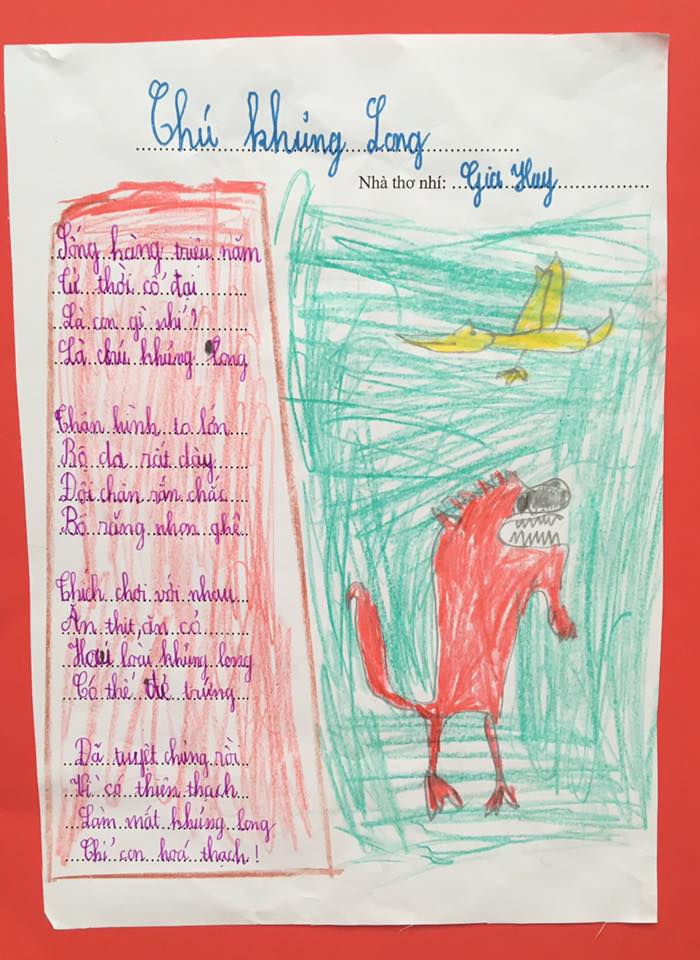 Chú khủng Long
Nhà thơ nhí: Gia Huy
Sống hàng triệu năm
Từ thời cổ đại
Là con gì nhỉ?
Là chú khủng long
Thân hình to lớn
Bộ da rất dày
Đôi chân rắn chắc
Bộ răng nhọn ghê
Thích chơi với nhau
Ăn thịt, ăn cỏ
Hai loài khủng long
Có thể đẻ trứng
Đã tuyệt chủng rồi
Vì có thiên thạch
Làm mất khủng long
Chỉ còn hoá thạch!